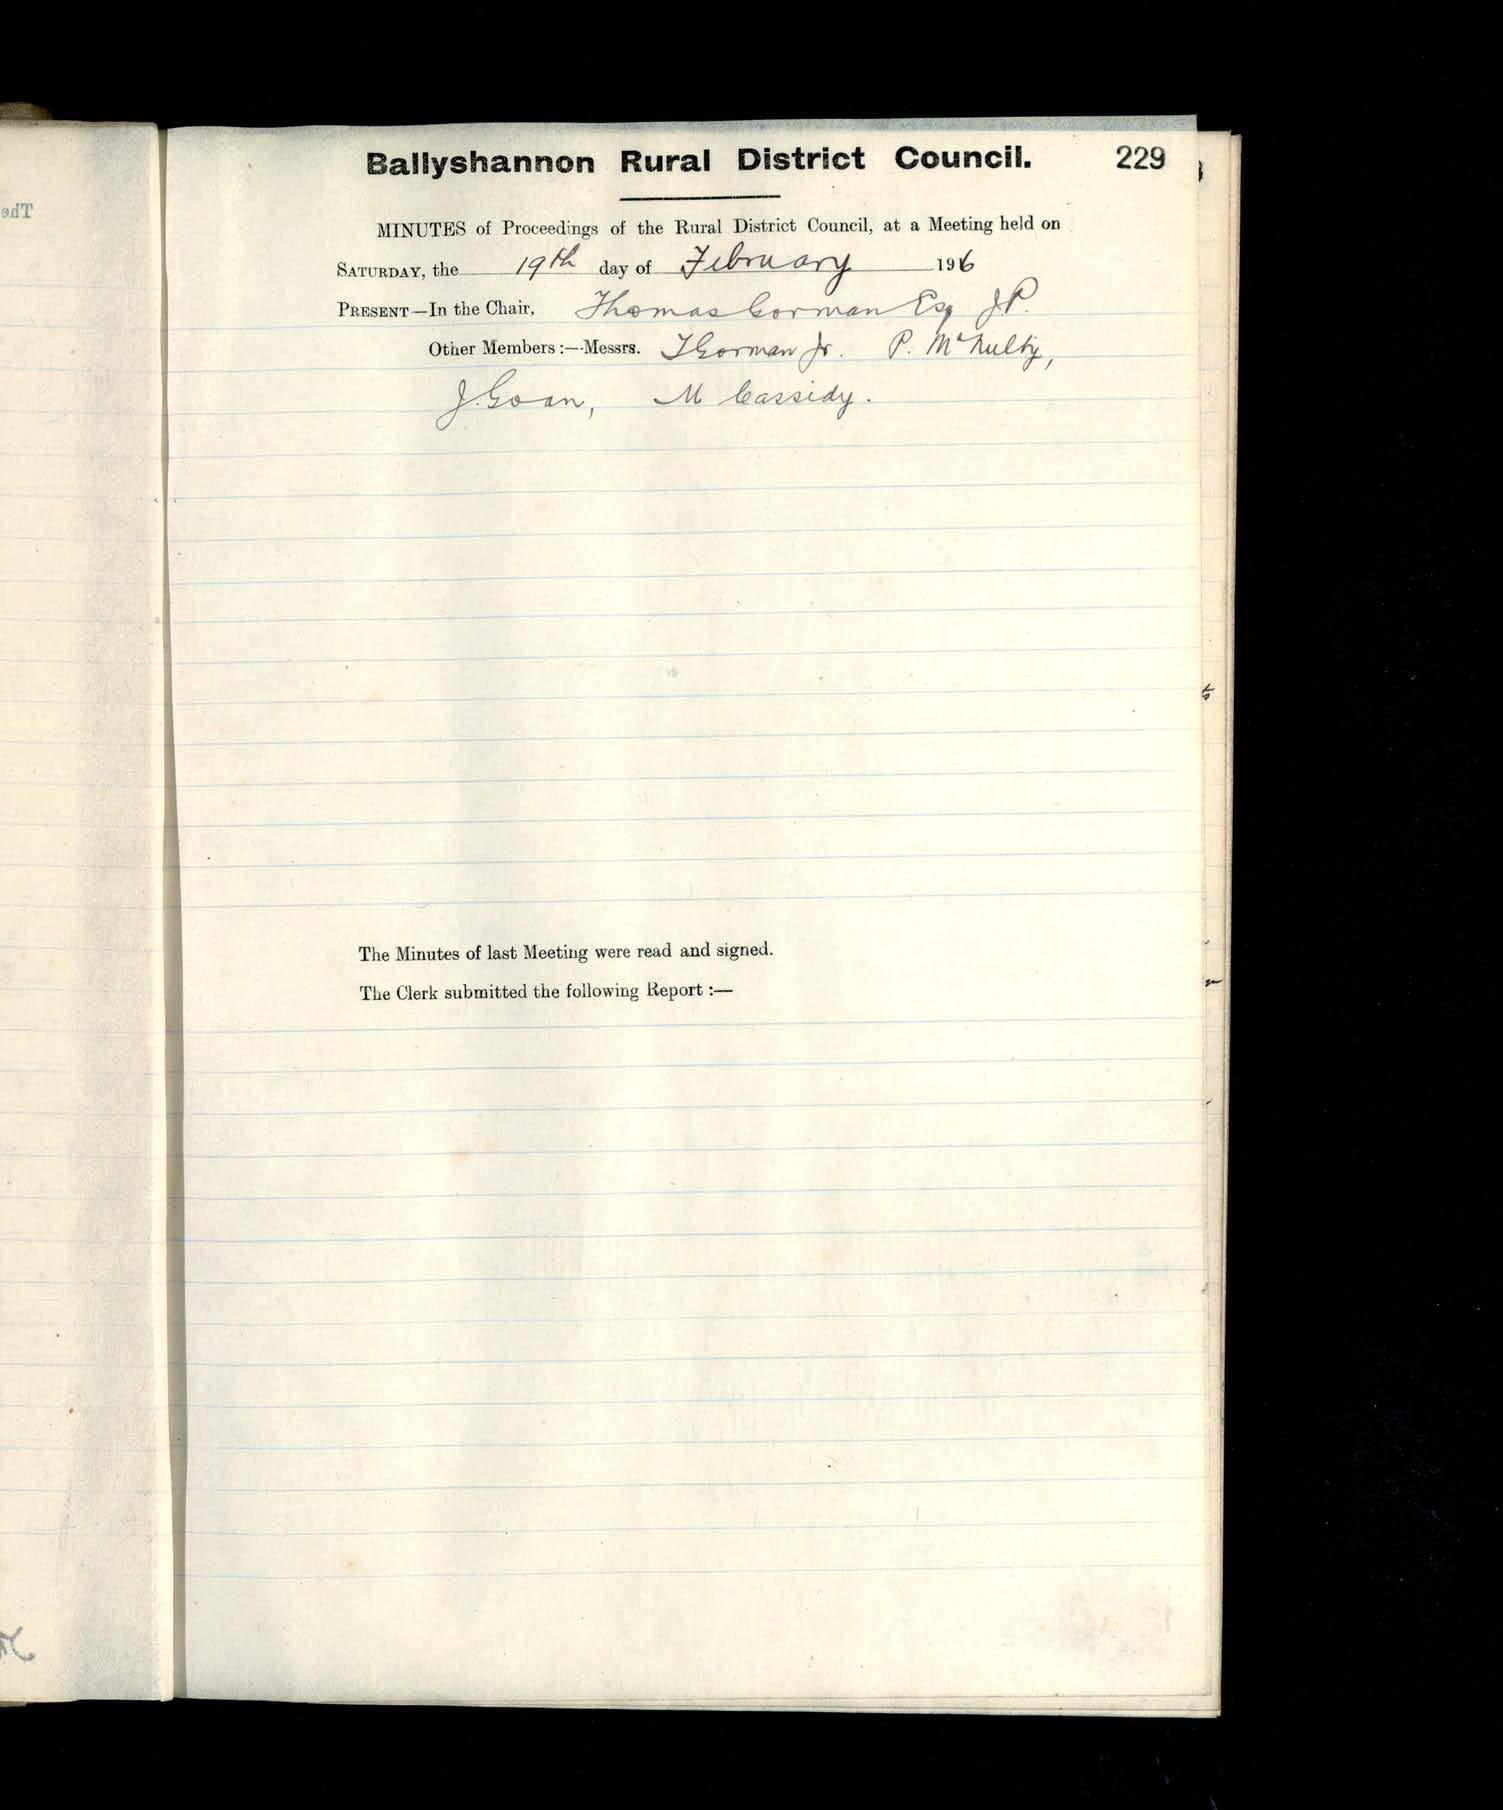 Ballyshannon Rural District Council. 229
MINUTES of Proceedings of the Rural District Council, at a Meeting held on
SATURDAY, the 19th day of February 196
PRESENT—In the Chair, Thomas Gorman Esq J.P.
Other Members:—Messrs. T Gorman Jr. P. McNulty,
J. Goan, M Cassidy.
The Minutes of last Meeting were read and signed.
The Clerk submitted the following Report :—